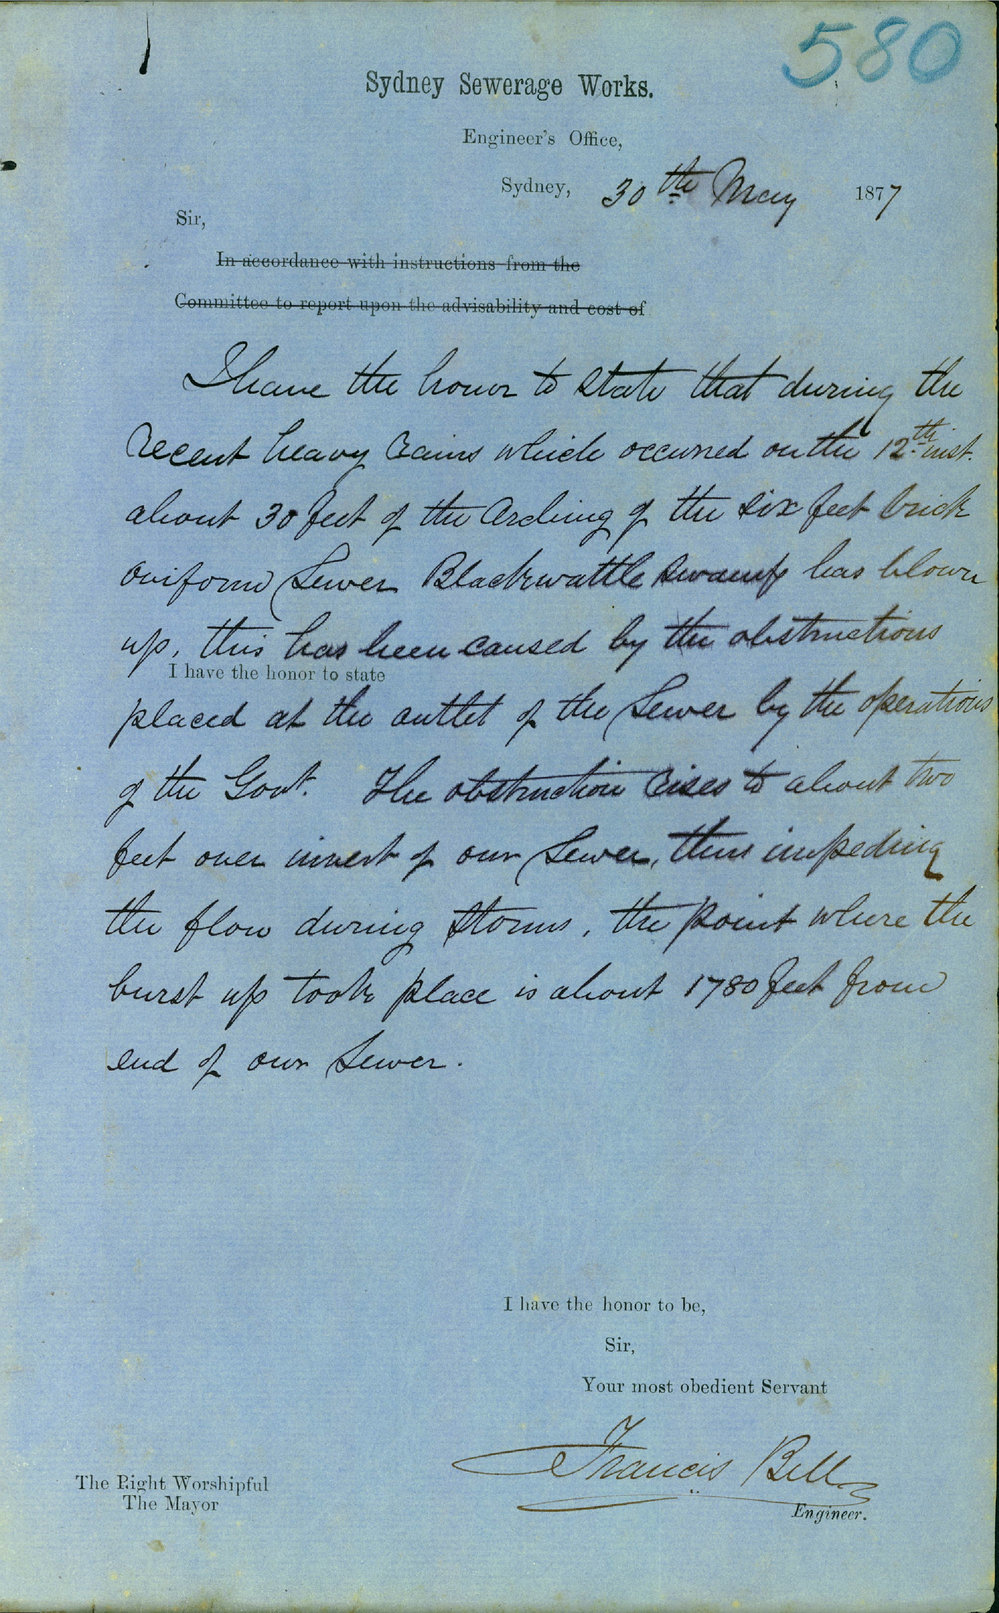 580
Sydney Sewerage Works.
Engineer's Office,
Sydney, 30th May 1877
Sir,
In accordance with instructions from the
Committee to report upon the advisability and cost of
I have the honor to state that during the
recent heavy rains which occurred on the 12th inst.
about 30 feet of the arching of the six feet brick
oviform Sewer Blackwattle Swamp has blown
up, this has been caused by the obstructions
I have the honor to state
placed at the outlet of the Sewer by the operations
of the Govt. The obstruction rises to about two
feet over invert of our Sewer, thus impeding
the flow during storms, the point where the
burst up took place is about 1780 feet from
end of our Sewer.
I have the honor to be,
Sir,
Your most obedient Servant
Francis Bell
Engineer.
The Right Worshipful
The Mayor